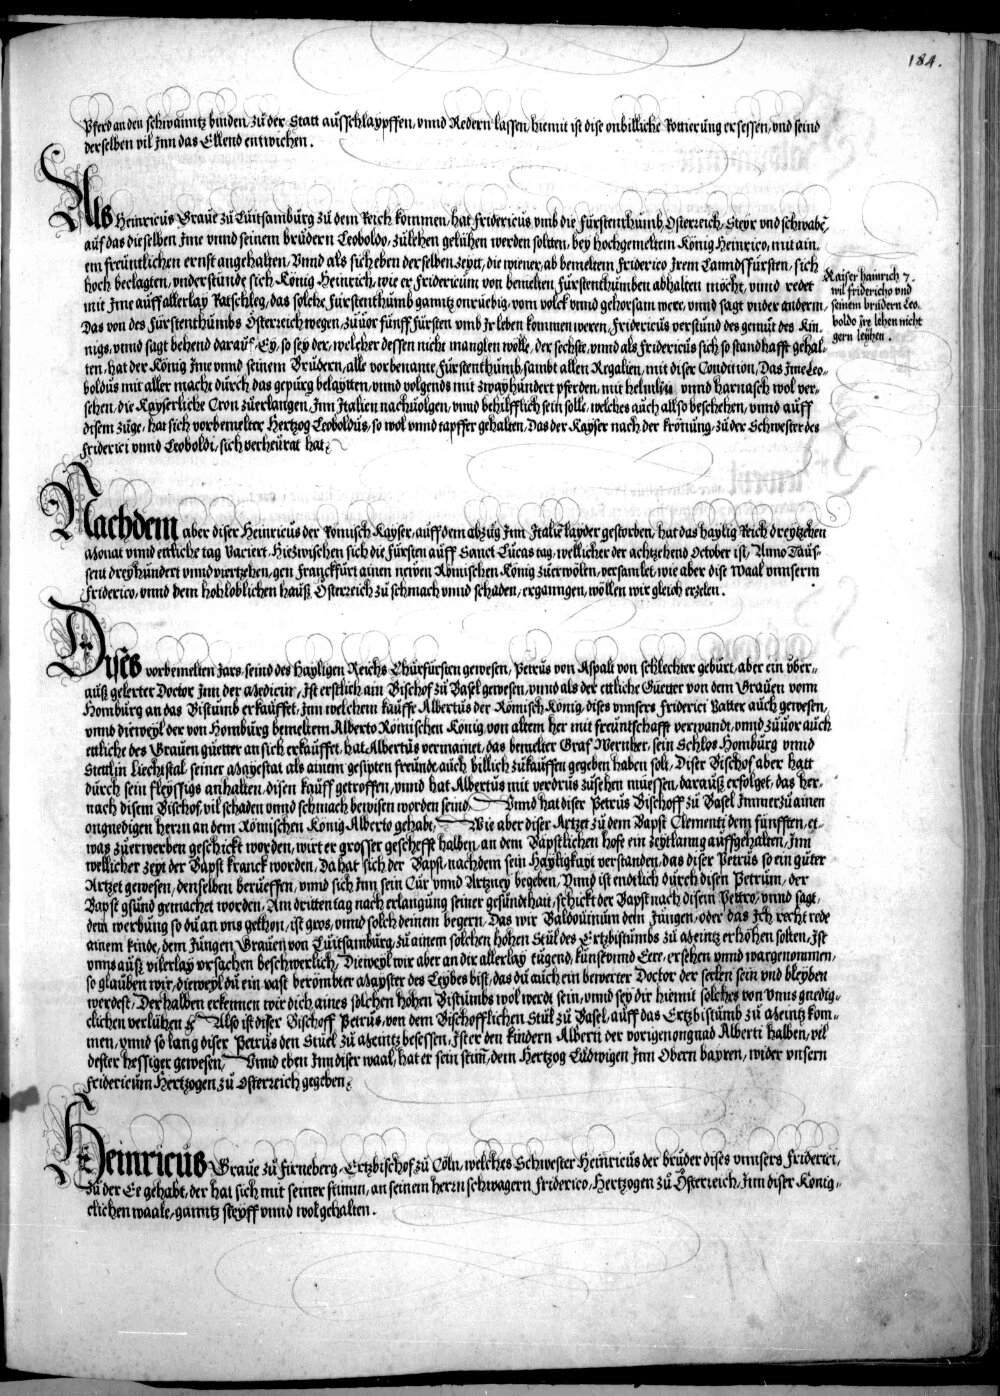 184.
Pferd an den schwanntz binden, zů der Statt ausschlaypffen, vnnd Redern lassen, hiemit ist dise onbilliche Rottierung ersessen, vnd seind
derselben vil Jnn das Ellend entwichen.
Als Heinricus Graue zů Lůtsamburg zů dem Reich kommen, hat Fridericus vmb die Fürstenthumb Osterreich, Steyr vnd schwabē,
auf das dieselben Jme vnnd seinem brůdern Leoboldo, zůlehen gelühen werden solten, bey hochgemeltem König Heinrico, mit ain,,
em freüntlichen ernst angehalten, Vnnd als sich eben derselben zeytt, die wiener, ab bemeltem Friderico Jrem Lanndsfürsten, sich
hoch beclagten, vnderstůnde sich König Heinrich, wie er Fridericum von bemelten Fürstenthumben abhalten möcht, vnnd redet
mit Jme auff allerlay Ratschleg, das solche Fürstenthumb ganntz onrüebig, vom volck vnnd gehorsam were, vnnd sagt vnder anderm,
Das von des Fürstenthumbs Osterreich wegen, zůuor fünff Fürsten vmb Jr leben kommen weren, Fridericus verstůnd des gemüt des Kü,,
nigs, vnnd sagt behend darauf, Ey, so sey der, welcher dessen nicht manglen wolle, der sechste, vnnd als Fridericus sich so standhafft gehal,,
ten, hat der König Jme vnnd seinem Brüdern, alle vorbenante Fürstenthumb, sambt allen Regalien, mit diser Condition, Das Jme Leo,,
boldus mit aller macht durch das gepürg belaytten, vnnd volgends mit zwayhůndert pferden, mit helmlin vnnd harnasch wol ver,,
sehen, die Kayserliche Cron zůerlangen, Jnn Italien nachuolgen, vnnd behilfflich sein solle, welches auch allso beschehen, vnnd auff
disem zuge, hat sich vorbemelter Hertzog Leoboldus, so wol vnnd tapffer gehalten, Das der Kayser nach der krönung, zů der Schwester des
Friderici vnnd Leoboldi, sich verheurat hat.
Kaiser hainrich 7.
wil fridericho vnd
seinem brüdern Leo,,
boldo Jre lehen nicht
gern leyhen.
Nachdem aber diser Heinricus der Römisch Kayser, auff dem abzug Jnn Italie layder gestorben, hat das haylig Reich dreytzehen
Monat vnnd ettliche tag Vaciert, Hiezwischen sich die Fürsten auff Sanct Lucas tag, wellicher der achtzehend October ist, Anno Taus,,
sent dreyhundert vnnd viertzehen, gen Franckfurt ainen newen Römischen König zůerwölen, versamlet, wie aber dise Waal vnnserm
Friderico, vnnd dem hohloblichen hauß Osterreich zů schmach vnnd schaden, erganngen, wöllen wir gleich erzelen.
Dises vorbemelten Jars, seind des Hayligen Reichs Churfürsten gewesen, Petrus von Aspalt von schlechter geburt, aber ein vber,,
auß gelerter Doctor Jnn der Medicin, Jst erstlich ain Bischof zu Basel gewesen, vnnd als der ettliche Guetter von dem Grauen vonn
Homburg an das Bistumb erkauffet, Jnn welchem kauffe Albertus der Römisch König, dises vnnsers Friderici Vatter auch gewesen,
vnnd dieweyl der von Homburg bemeltem Alberto Römischen König, von altem her mit freuntschafft verwandt, vnnd zůuor auch
ettliche des Grauen guetter an sich erkauffet, hat Albertus vermainet, das bemelter Graf Wernher, sein Schlos Homburg vnnd
Stettlin Liechstal seiner Mayestat als ainem gesipten freunde auch billich zůkauffen gegeben haben solt, Diser Bischof aber hatt
durch sein fleyssigs anhalten, disen kauff getroffen, vnnd hat Albertus mit verdrus zůsehen müessen, darauß erfolget, das her,,
nach disem Bischof, vil schaden vnnd schmach bewisen worden seind. Vnnd hat diser Petrus Bischoff zů Basel Jmmerzů ainen
ongnedigen herrn an dem Römischen König Alberto gehabt, Wie aber diser Artzet zů dem Bapst Clementi dem fünfften, et,,
was zůerwerben geschickt worden, wirt er grosser gescheft halben, an dem Bäpstlichen hofe ein zeytlanng auffgehalten, Jnn
wellicher zeyt der Bapst kranck worden, Da hat sich der Bapst, nachdem sein Hayligkayt verstanden, das diser Petrus so ein gůter
Artzet gewesen, denselben berueffen, vnnd sich Jnn sein Cur vnnd Artzney begeben, Vnnd ist endtlich durch disen Petrum, der
Bapst gsund gemachet worden, Am dritten tag nach erlangung seiner gesundthait, schickt der Bapst nach disem Pettro, vnnd sagt,
dein werbung so du an vns gethon, ist gros, vnnd solch deinem begern, Das wir Baldouinum dem Jungen, oder das Jch recht rede
ainem kinde, dem Jungen Grauen von Lutsamburg, zu ainem solchen hohen Stul des Ertzbistumbs zu Meintz erhöhen solten, Jst
vnns auß vilerlay vrsachen beschwerlich, Dieweyl wir aber an dir allerlay tugend, kunst vnnd Eere, ersehen vnnd wargenommen,
so glauben wir, dieweyl du ein vast berömbter Mayster des Leybes bist, das du auch ein bewerter Doctor der seelen sein vnd bleyben
werdest, Derhalben erkennen wir dich aines solchen hohen Bistumbs wol werdt sein, vnnd sey dir hiemit solches von vnns gnedig,,
clichen verlühen. Also ist diser Bischoff Petrus, von dem Bischofflichen Stul zů Basel, auff das Ertzbistumb zů Meintz kom,,
men, vnnd so lang diser Petrus den Stuel zů Meintz besessen, Jst er den kindern Alberti der vorigen ongnad Alberti halben, vil
dester hessiger gewesen, Vnnd eben Jnn diser waal, hat er sein stim̄, dem Hertzog Ludwigen Jnn Obern bayren, wider vnsern
Fridericum Hertzogen zů Osterreich gegeben.
Heinricus Graue zů Firneberg, Ertzbischof zů Cöln, welches Schwester Heinricus der brůder dises vnnsers Friderici,
zů der Ee gehabt, der hat sich mit seiner stimm, an seinem herrn schwagern Friderico, Hertzogen zů Österreich, Jnn diser König,,
clichen waale, ganntz steyff vnnd wol gehalten.